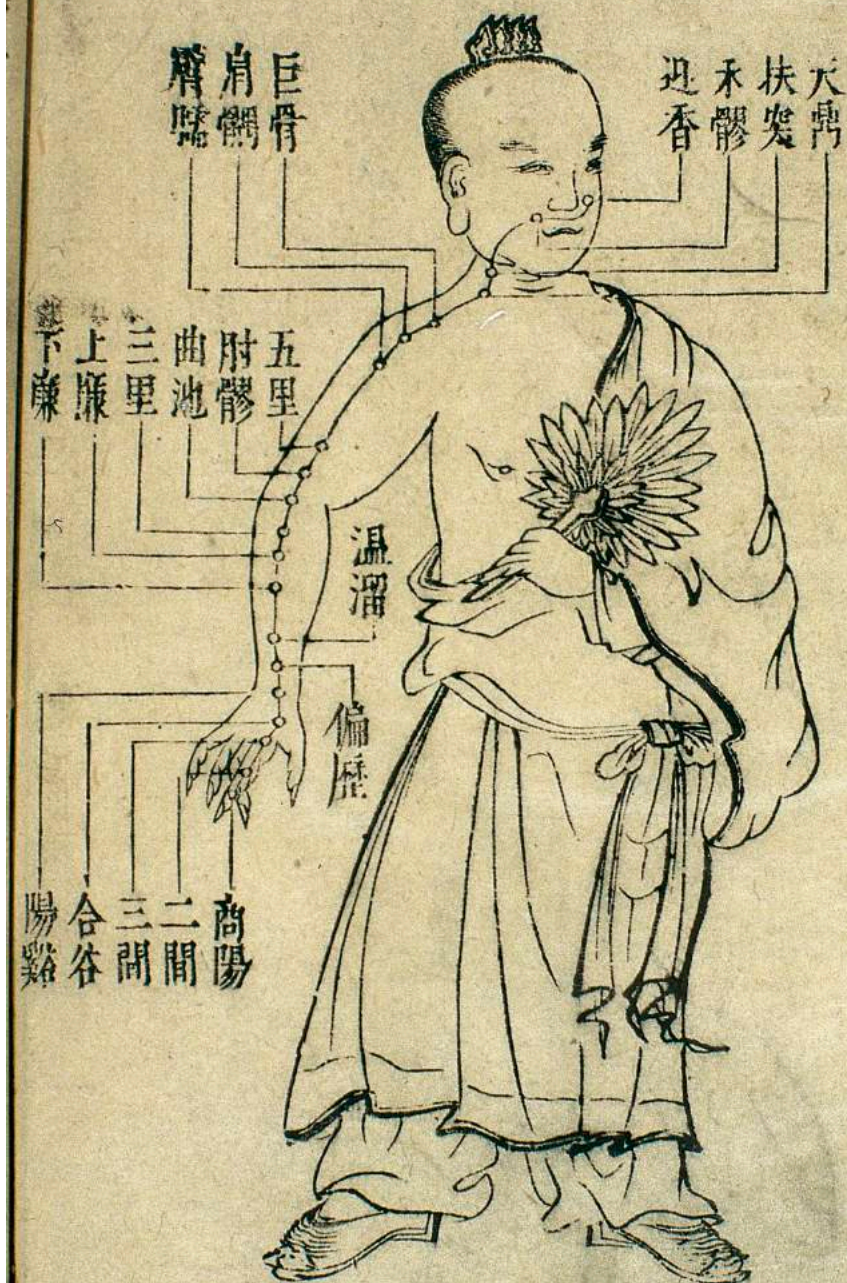 天鼎
扶突
禾髎
迎香
巨骨
肩髃
臂臑
五里
肘髎
曲池
三里
上廉
下廉
温溜
偏歷
商陽
二間
三間
合谷
陽谿